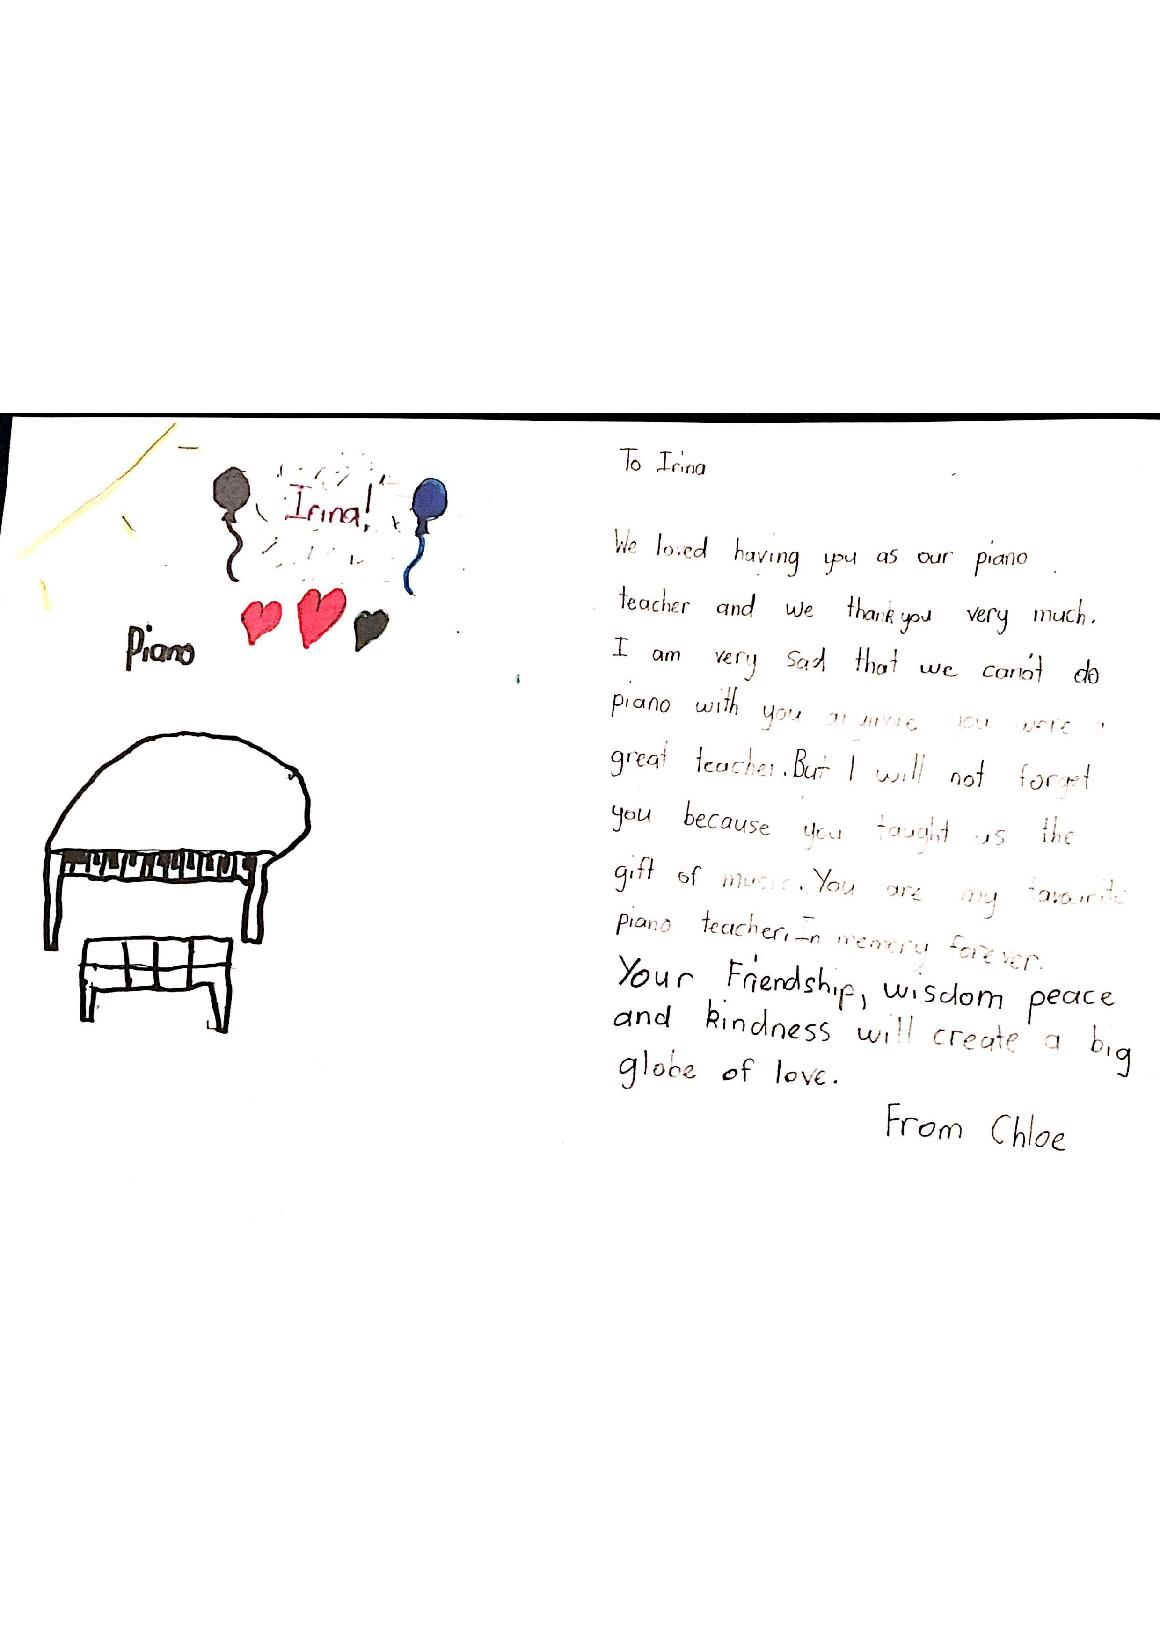 Irina!
Piano
To Irina
We loved having you as our piano
teacher and we thank you very much.
I am very sad that we can't do
piano with you anymore you were a
great teacher. But I will not forget
you because you taught us the
gift of music. You are my favourite
piano teacher, In memory forever.
Your Friendship, wisdom peace
and kindness will create a big
globe of love.
From Chloe